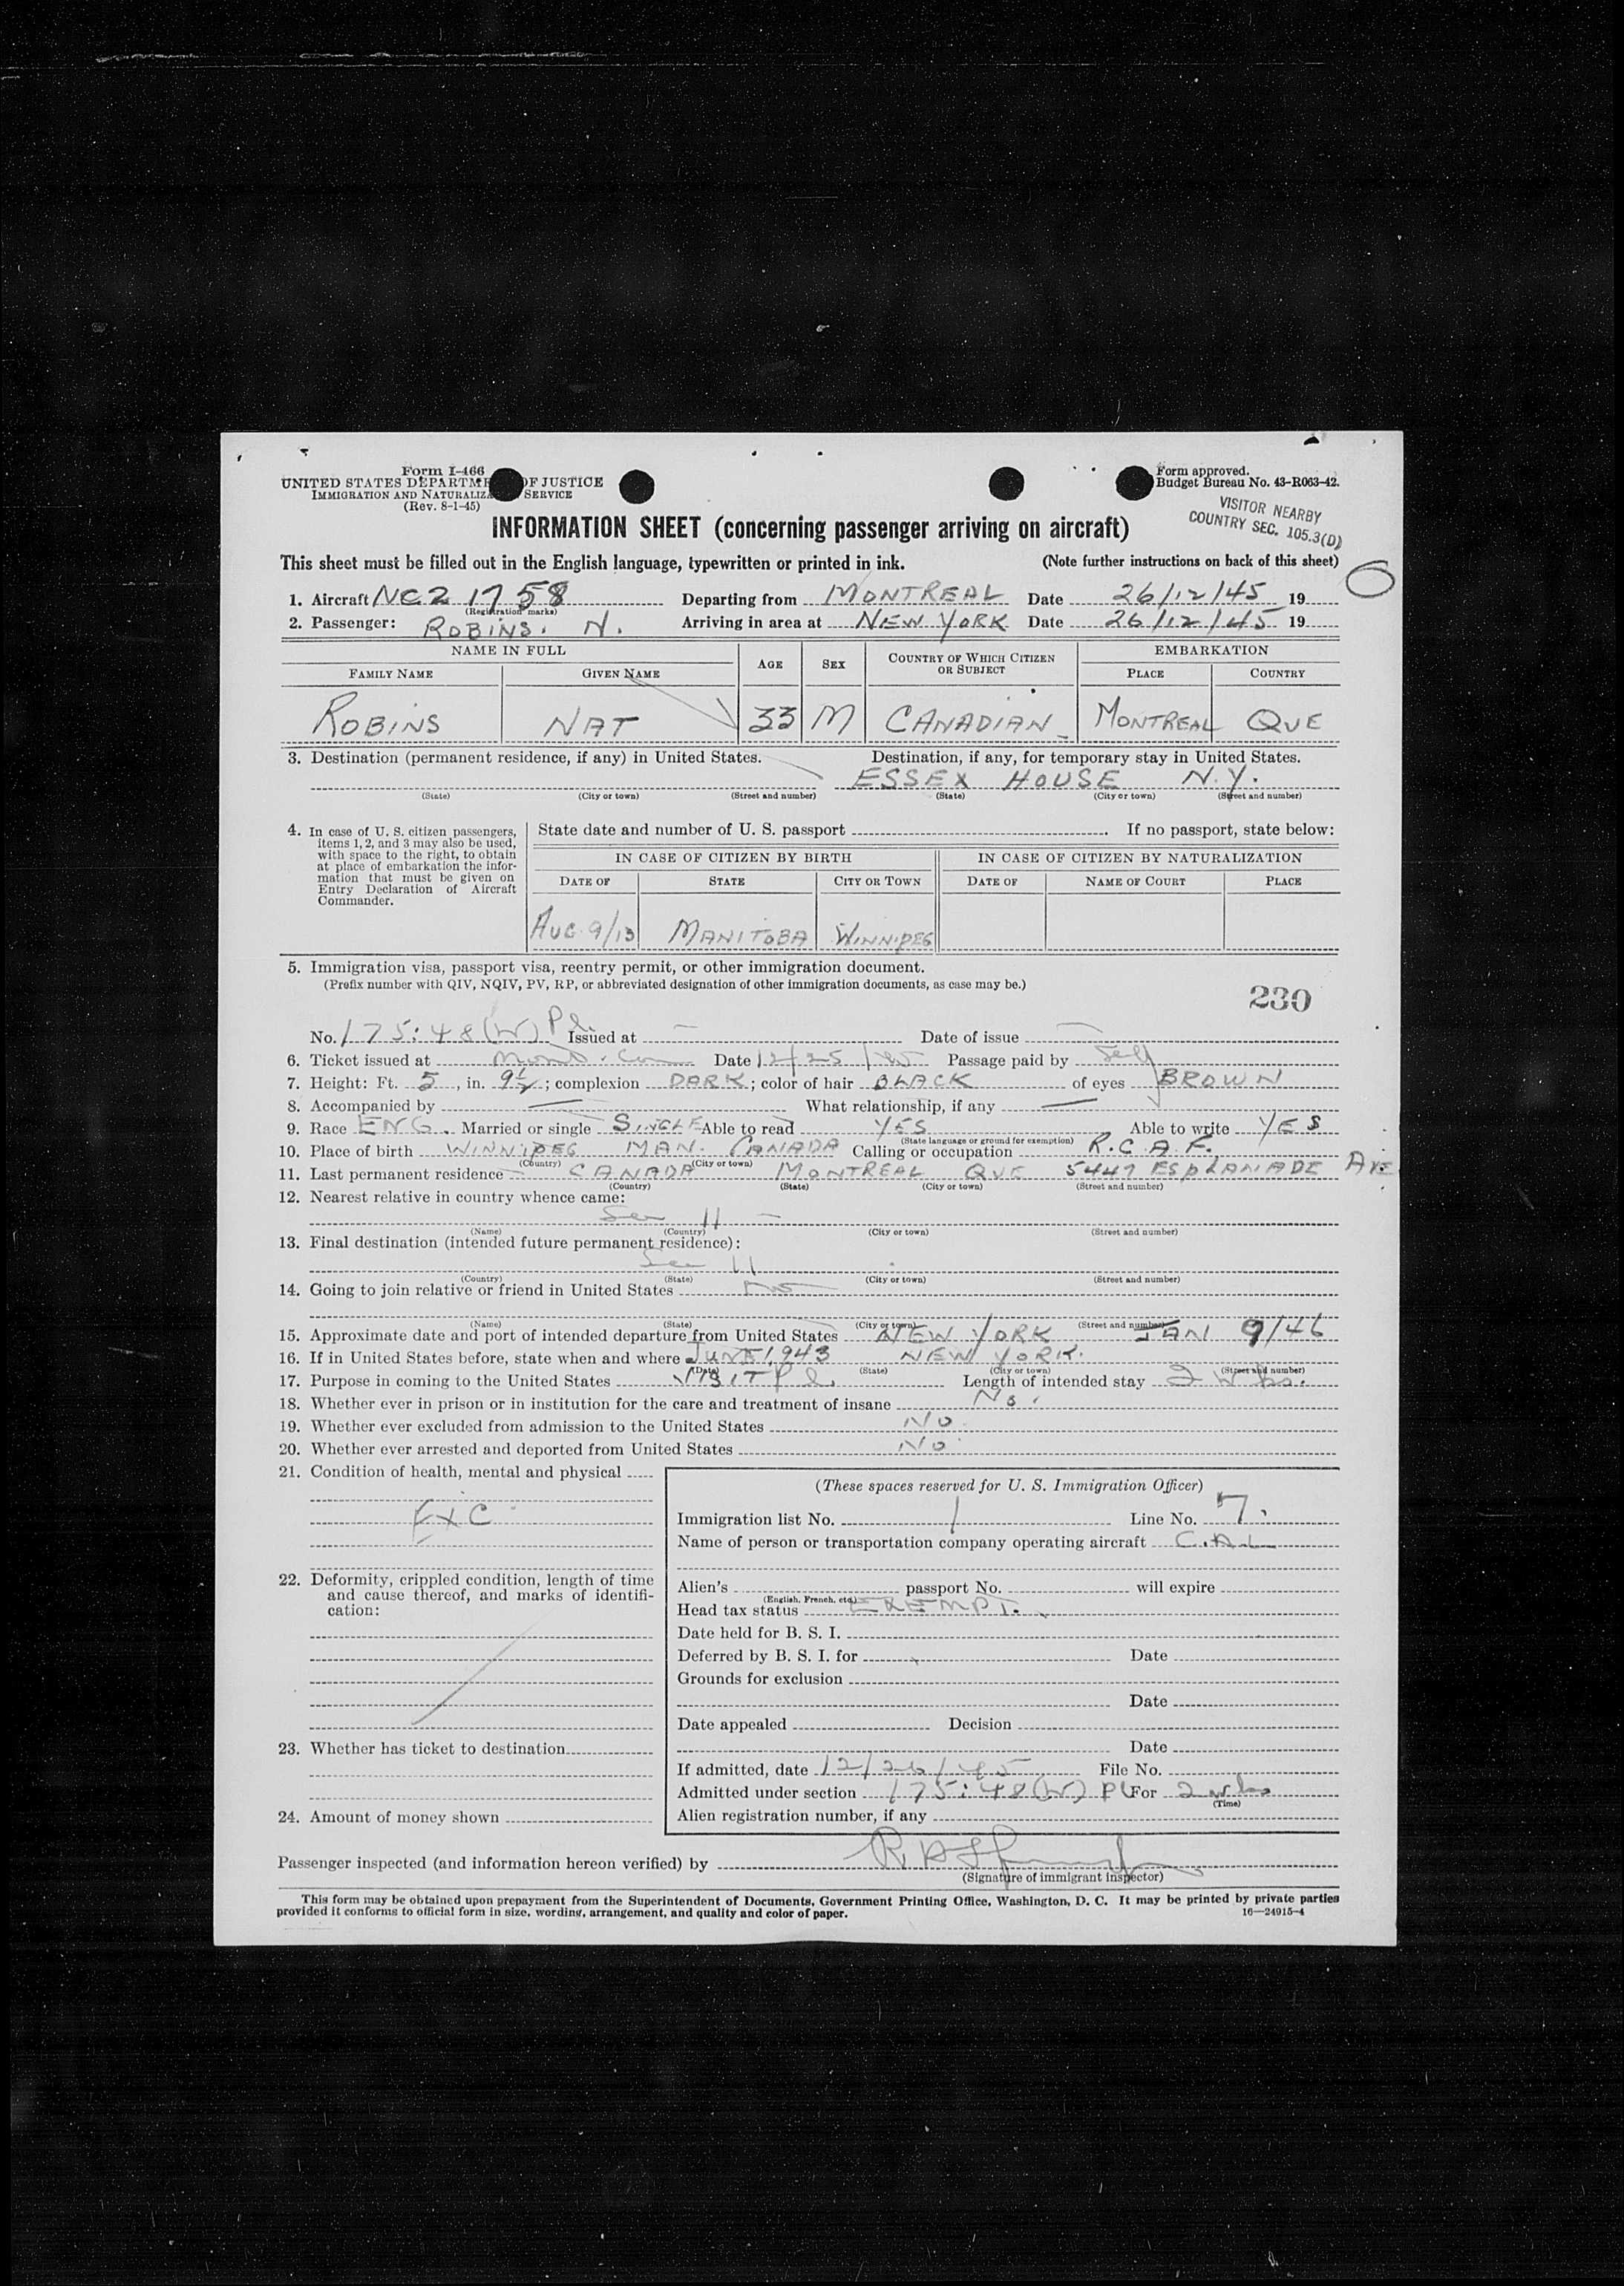 Form I-466
UNITED STATES DEPARTME OF JUSTICE
IMMIGRATION AND NATURALIZA SERVICE
(Rev. 8-1-45)
Form approved.
Budget Bureau No. 43-R063-42.
VISITOR NEARBY
COUNTRY SEC. 105.3(D)
INFORMATION SHEET (concerning passenger arriving on aircraft)
This sheet must be filled out in the English language, typewritten or printed in ink. (Note further instructions on back of this sheet)
1. Aircraft NC21758 Departing from MONTREAL Date 26/12/45 19
(Registration marks)
2. Passenger: ROBINS. N. Arriving in area at NEW YORK Date 26/12/45 19
NAME IN FULL AGE SEX COUNTRY OF WHICH CITIZEN OR SUBJECT EMBARKATION
FAMILY NAME GIVEN NAME PLACE COUNTRY
ROBINS NAT 33 M CANADIAN MONTREAL QUE
3. Destination (permanent residence, if any) in United States. Destination, if any, for temporary stay in United States.
ESSEX HOUSE N.Y.
(State) (City or town) (Street and number) (State) (City or town) (Street and number)
4. In case of U. S. citizen passengers, items 1, 2, and 3 may also be used, with space to the right, to obtain at place of embarkation the information that must be given on Entry Declaration of Aircraft Commander.
State date and number of U. S. passport . If no passport, state below:
IN CASE OF CITIZEN BY BIRTH IN CASE OF CITIZEN BY NATURALIZATION
DATE OF STATE CITY OR TOWN DATE OF NAME OF COURT PLACE
AUG. 9/13 MANITOBA WINNIPEG
5. Immigration visa, passport visa, reentry permit, or other immigration document.
(Prefix number with QIV, NQIV, PV, RP, or abbreviated designation of other immigration documents, as case may be.)
230
No. 175:48(W) Pl Issued at — Date of issue —
6. Ticket issued at Date 12/25/45 Passage paid by Self
7. Height: Ft. 5, in. 9½; complexion DARK; color of hair BLACK of eyes BROWN
8. Accompanied by — What relationship, if any —
9. Race ENG. Married or single SINGLE Able to read YES Able to write YES
(State language or ground for exemption)
10. Place of birth WINNIPEG MAN. CANADA Calling or occupation R.C.A.F.
(Country) (City or town)
11. Last permanent residence CANADA MONTREAL QUE 5447 ESPLANADE AVE.
(Country) (State) (City or town) (Street and number)
12. Nearest relative in country whence came:
See 11 —
(Name) (Country) (City or town) (Street and number)
13. Final destination (intended future permanent residence):
See 11
(Country) (State) (City or town) (Street and number)
14. Going to join relative or friend in United States No
(Name) (State) (City or town) (Street and number)
15. Approximate date and port of intended departure from United States NEW YORK JAN 9/46
16. If in United States before, state when and where JUNE 1943 NEW YORK.
(Date) (State) (City or town) (Street and number)
17. Purpose in coming to the United States VISIT Pl. Length of intended stay 2 wks.
18. Whether ever in prison or in institution for the care and treatment of insane No.
19. Whether ever excluded from admission to the United States No
20. Whether ever arrested and deported from United States No
21. Condition of health, mental and physical
EXC
22. Deformity, crippled condition, length of time and cause thereof, and marks of identification:
23. Whether has ticket to destination
24. Amount of money shown
(These spaces reserved for U. S. Immigration Officer)
Immigration list No. 1 Line No. 7.
Name of person or transportation company operating aircraft C.A.L
Alien's passport No. will expire
(English, French, etc.)
Head tax status EXEMPT.
Date held for B. S. I.
Deferred by B. S. I. for Date
Grounds for exclusion
Date
Date appealed Decision
Date
If admitted, date 12/26/45 File No.
Admitted under section 175:48(W) Pl For 2 wks
(Time)
Alien registration number, if any
Passenger inspected (and information hereon verified) by
(Signature of immigrant inspector)
This form may be obtained upon prepayment from the Superintendent of Documents, Government Printing Office, Washington, D. C. It may be printed by private parties
provided it conforms to official form in size, wording, arrangement, and quality and color of paper. 16—24915-4